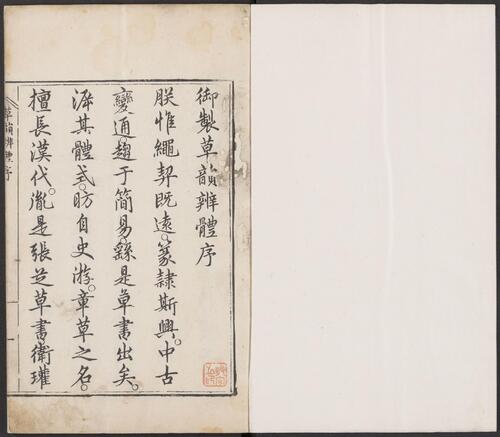 御製草韻辨體序
朕惟繩契既遠。篆隷斯興。中古
變通。趨于簡易。繇是草書出矣。
㴑其體式。昉自史游。章草之名。
擅長漢代。胤是張芝草書衛瓘
草韻辨體序